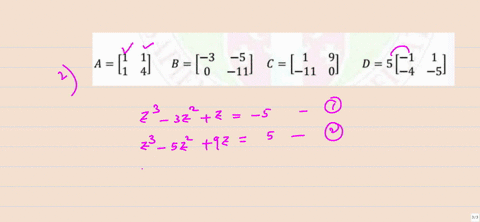 2) A = [1 1 1 4] B = [−3 −5 0 −11] C = [1 9 −11 0] D = 5[−1 1 −4 −5]
z³ − 3z² + z = −5 — ①
z³ − 5z² + 9z = 5 — ②